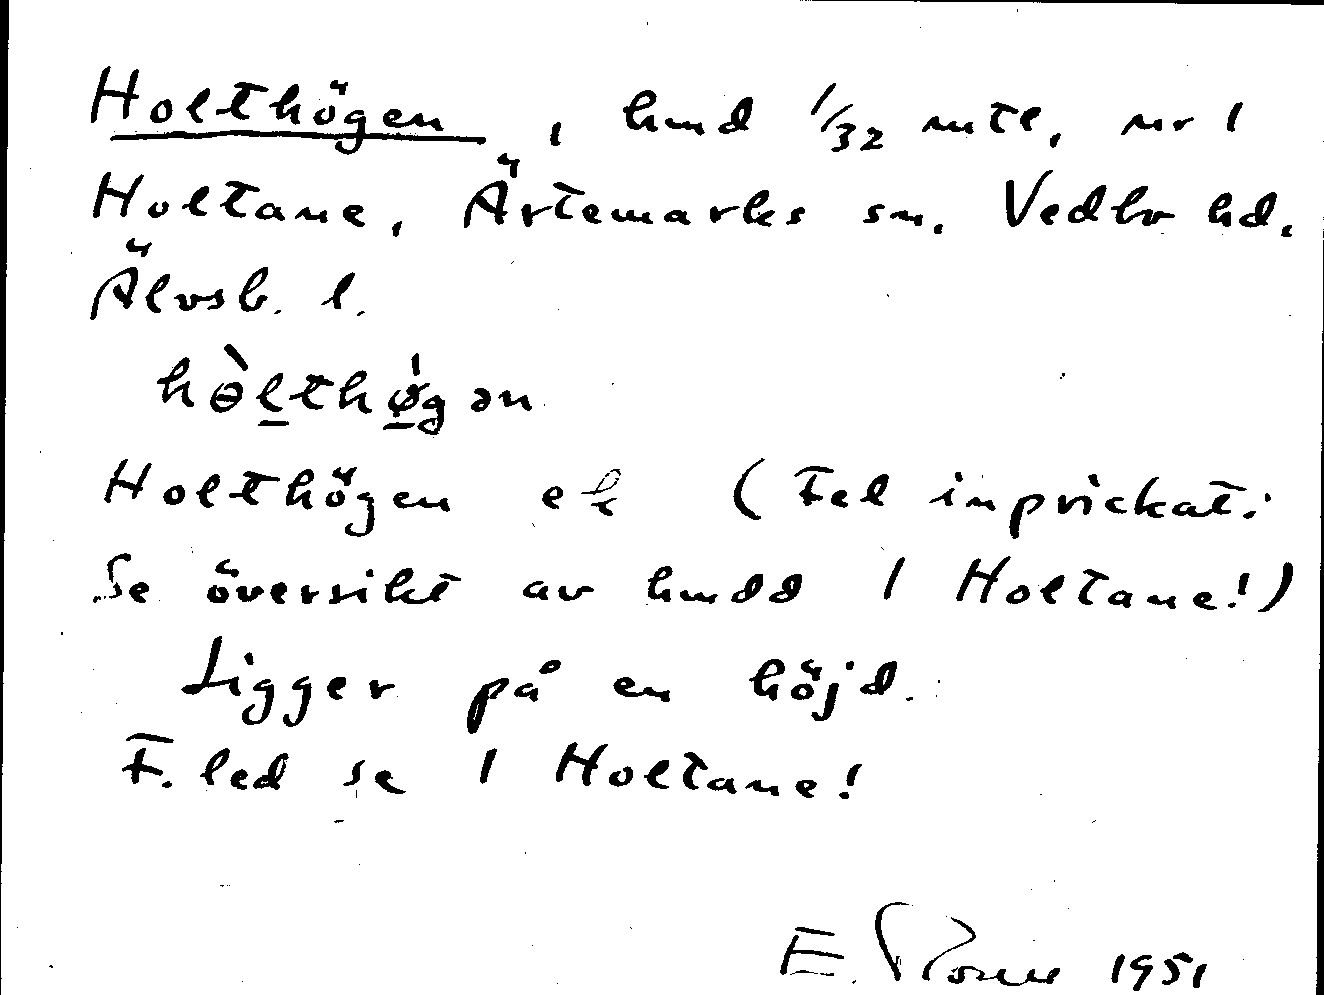 Holthögen, hmd 1/32 mtl, nr 1
Holtane, Ärtemarks sn. Vedbo hd.
Älvsb. l.
hɵ̀lthǿgən
Holthögen ek (Fel inprickat.
Se översikt av hmdd 1 Holtane!)
Ligger på en höjd.
F. led se 1 Holtane!
E. 1951